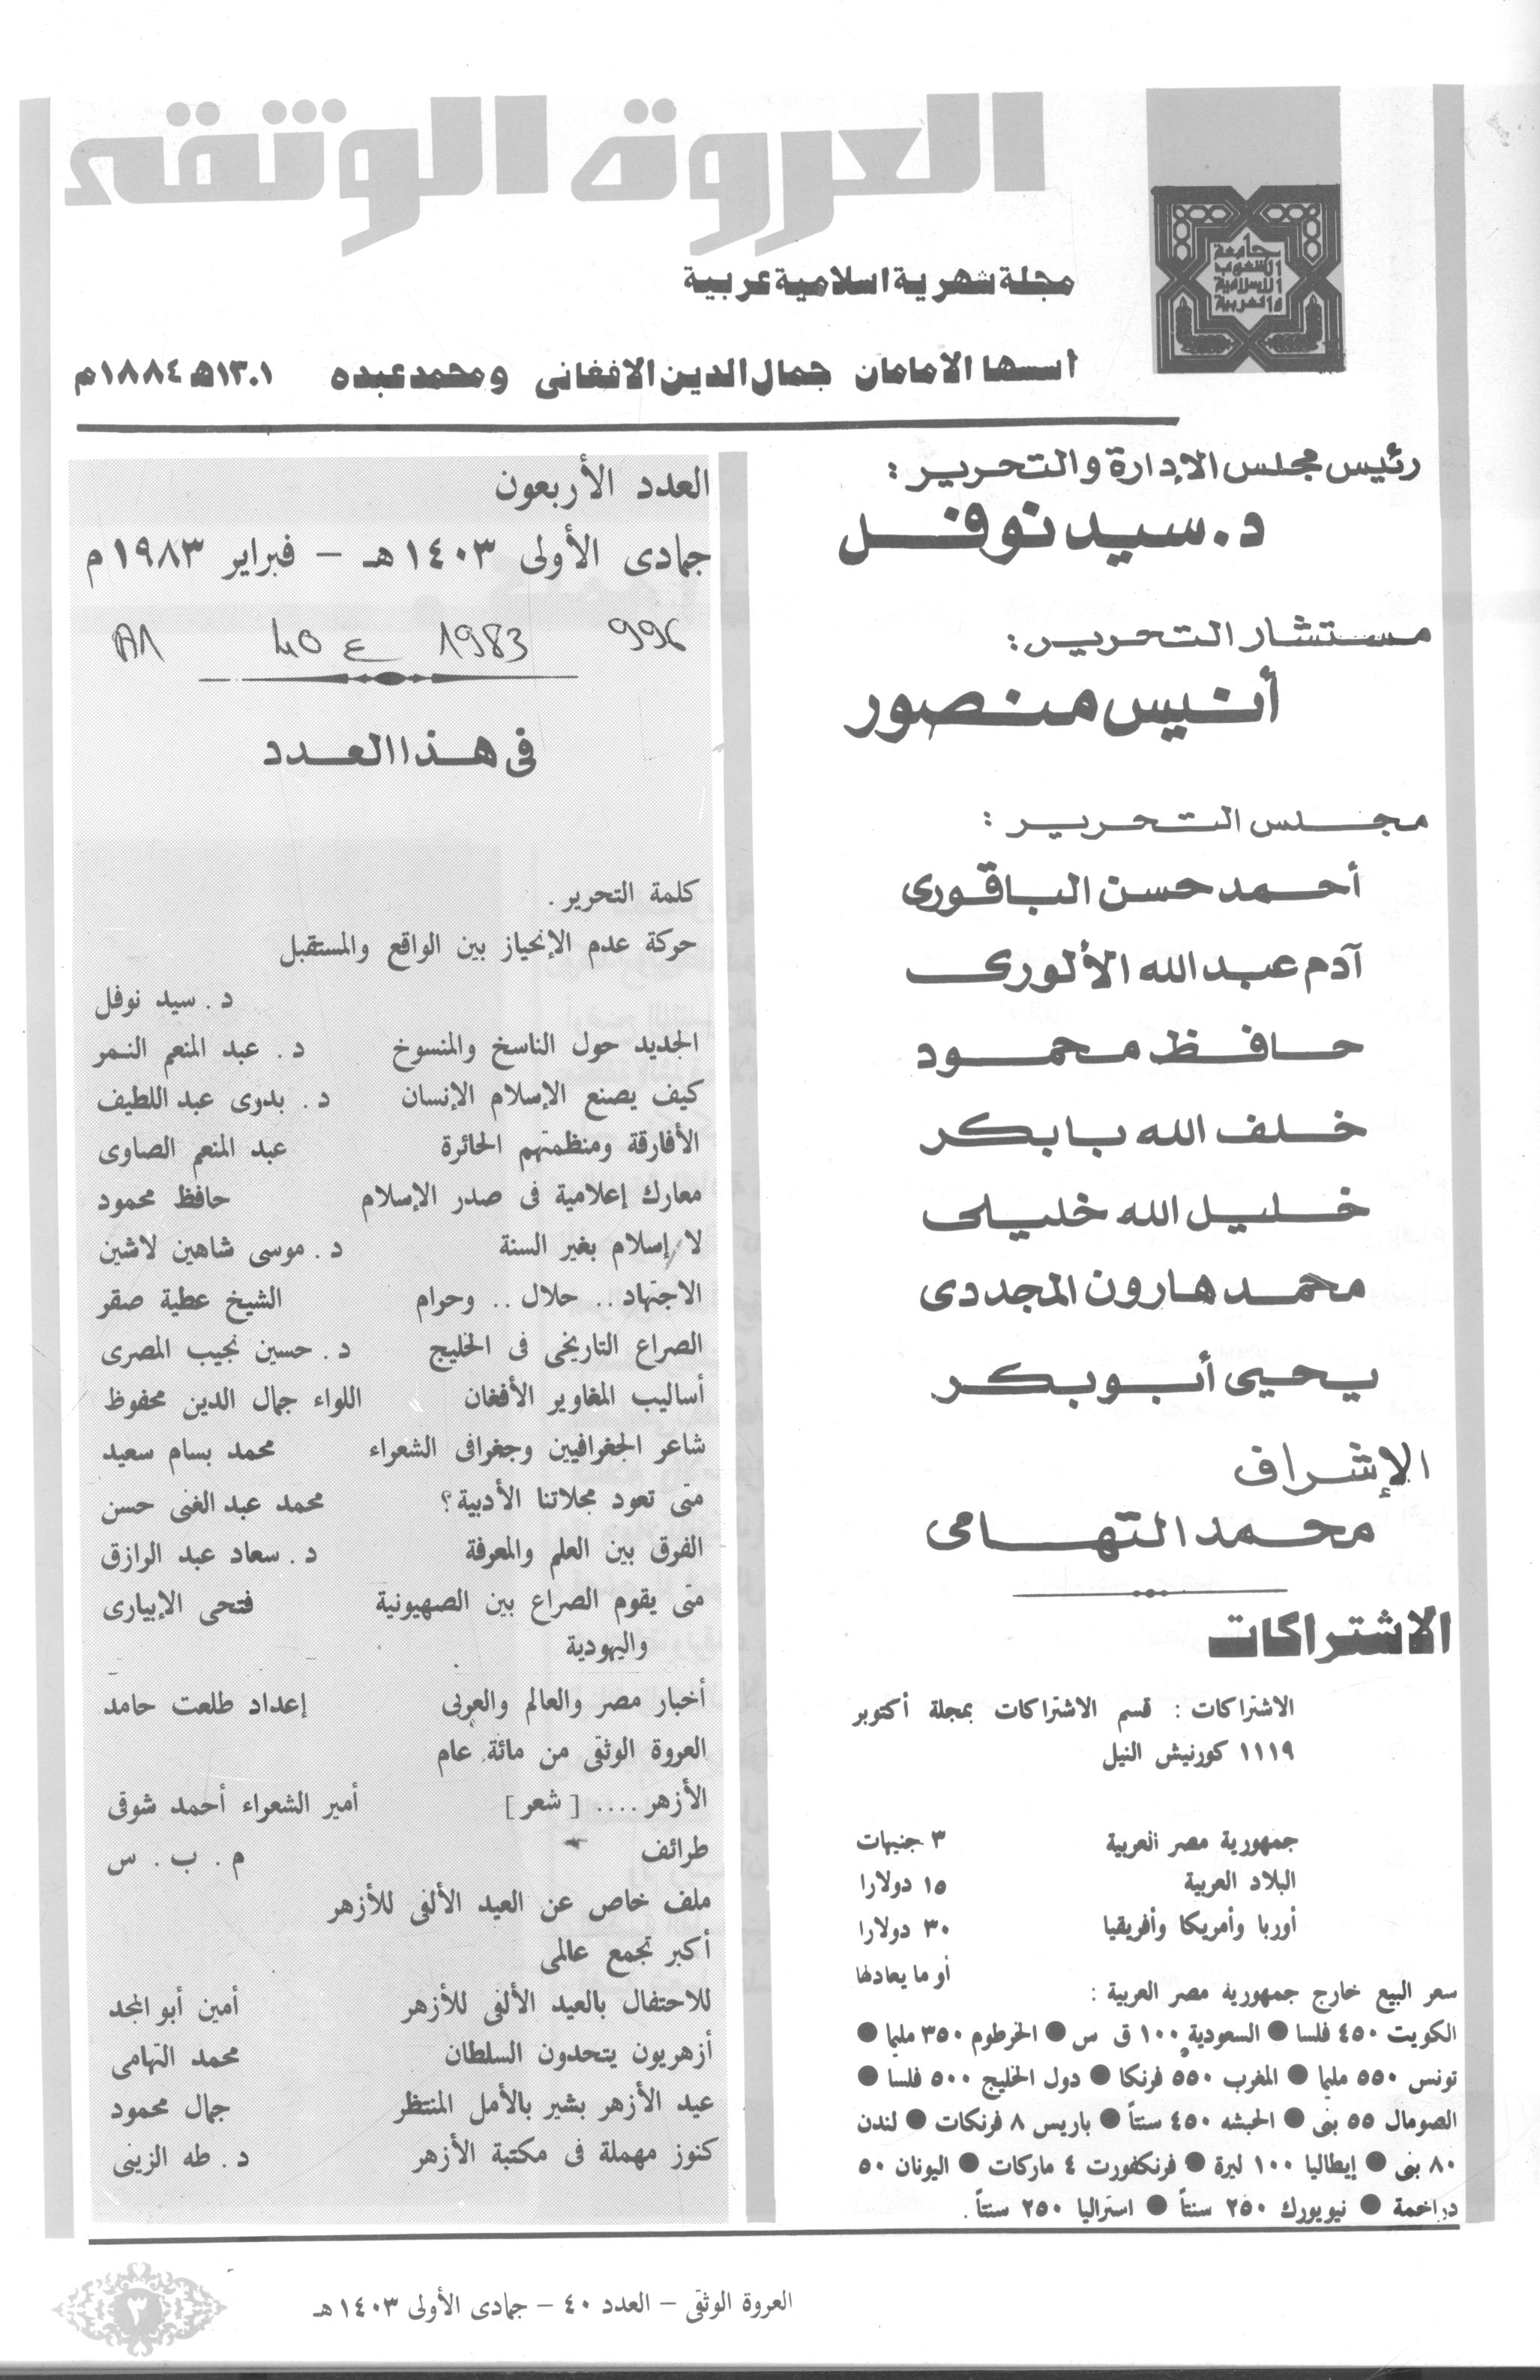 العروة الوثقى
جامعة
الشعوب
الإسلامية
والعربية
مجلة شهرية اسلامية عربية
أسسها الامامان جمال الدين الافغانى ومحمد عبده ١٣٠١هـ ١٨٨٤م
رئيس مجلس الإدارة والتحرير :
د. سيد نوفل
مستشار التحرير :
أنيس منصور
مجلس التحرير :
أحمد حسن الباقورى
آدم عبد الله الألورى
حافظ محمود
خلف الله بابكر
خليل الله خليلى
محمد هارون المجددى
يحيى أبو بكر
الإشراف
محمد التهامى
الاشتراكات
الاشتراكات : قسم الاشتراكات بمجلة أكتوبر
١١١٩ كورنيش النيل
جمهورية مصر العربية ٣ جنيهات
البلاد العربية ١٥ دولارا
أوربا وأمريكا وأفريقيا ٣٠ دولارا
أو ما يعادلها
سعر البيع خارج جمهورية مصر العربية :
الكويت ٤٥٠ فلسا ● السعودية ١٠٠ ق س ● الخرطوم ٣٥٠ مليما ●
تونس ٥٥٠ مليما ● المغرب ٥٥٠ فرنكا ● دول الخليج ٥٠٠ فلسا ●
الصومال ٥٥ بنى ● الحبشه ٤٥٠ سنتاً ● باريس ٨ فرنكات ● لندن
٨٠ بنى ● إيطاليا ١٠٠ ليرة ● فرنكفورت ٤ ماركات ● اليونان ٥٠
دراخمة ● نيويورك ٢٥٠ سنتاً ● استراليا ٢٥٠ سنتاً .
العدد الأربعون
جمادى الأولى ١٤٠٣هـ – فبراير ١٩٨٣م
996 1983 ع 40
فى هذا العدد
كلمة التحرير .
حركة عدم الإنحياز بين الواقع والمستقبل
د . سيد نوفل
الجديد حول الناسخ والمنسوخ د . عبد المنعم النمر
كيف يصنع الإسلام الإنسان د . بدوى عبد اللطيف
الأفارقة ومنظمتهم الحائرة عبد المنعم الصاوى
معارك إعلامية فى صدر الإسلام حافظ محمود
لا إسلام بغير السنة د . موسى شاهين لاشين
الاجتهاد .. حلال .. وحرام الشيخ عطية صقر
الصراع التاريخى فى الخليج د . حسين نجيب المصرى
أساليب المغاوير الأفغان اللواء جمال الدين محفوظ
شاعر الجغرافيين وجغرافى الشعراء محمد بسام سعيد
متى تعود مجلاتنا الأدبية ؟ محمد عبد الغنى حسن
الفرق بين العلم والمعرفة د . سعاد عبد الرازق
متى يقوم الصراع بين الصهيونية فتحى الإبيارى
واليهودية
أخبار مصر والعالم والعربى إعداد طلعت حامد
العروة الوثقى من مائة عام
الأزهر .... [ شعر ] أمير الشعراء أحمد شوقى
طرائف م . ب . س
ملف خاص عن العيد الألفى للأزهر
أكبر تجمع عالمى
للاحتفال بالعيد الألفى للأزهر أمين أبو المجد
أزهريون يتحدون السلطان محمد التهامى
عيد الأزهر بشير بالأمل المنتظر جمال محمود
كنوز مهملة فى مكتبة الأزهر د . طه الزينى
العروة الوثقى – العدد ٤٠ – جمادى الأولى ١٤٠٣هـ
٣